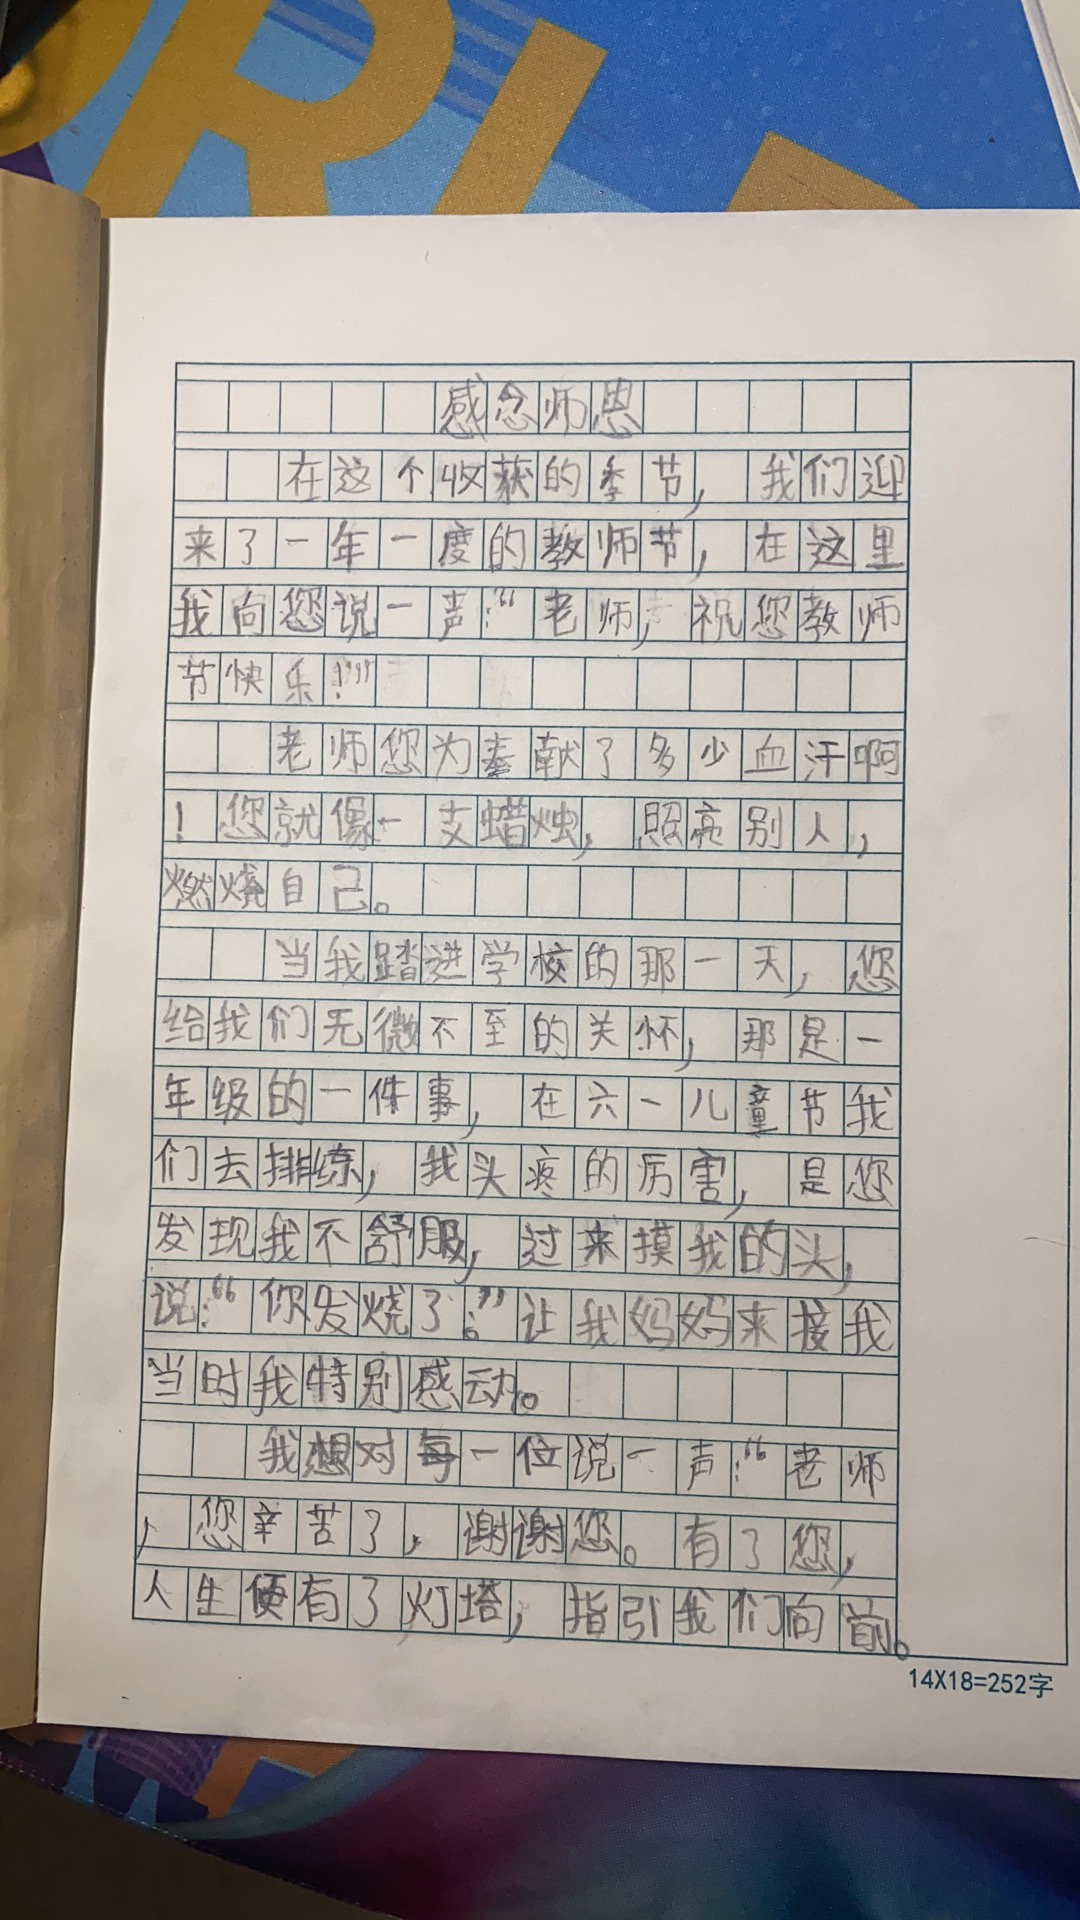 感念师恩
在这个收获的季节，我们迎
来了一年一度的教师节，在这里
我向您说一声：“老师，祝您教师
节快乐！”
老师您为奉献了多少血汗啊
！您就像一支蜡烛，照亮别人，
燃烧自己。
当我踏进学校的那一天，您
给我们无微不至的关怀，那是一
年级的一件事，在六一儿童节我
们去排练，我头疼的厉害，是您
发现我不舒服，过来摸我的头，
说：“你发烧了！”让我妈妈来接我
当时我特别感动。
我想对每一位说一声：“老师
，您辛苦了，谢谢您。有了您，
人生便有了灯塔，指引我们向前。
14X18=252字